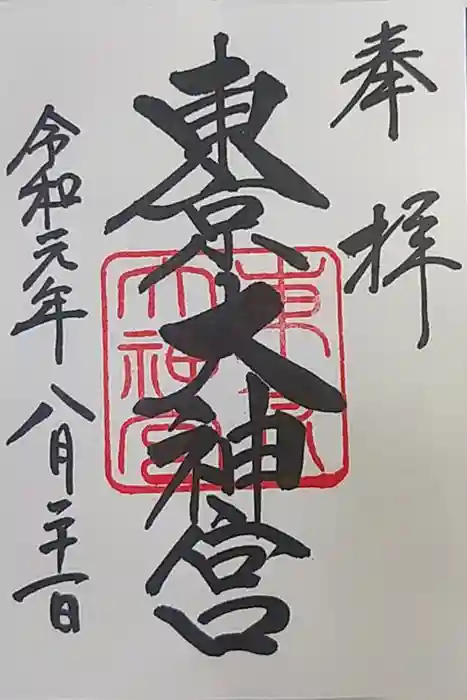 奉拝
東京大神宮
東京大神宮
令和元年八月二十一日